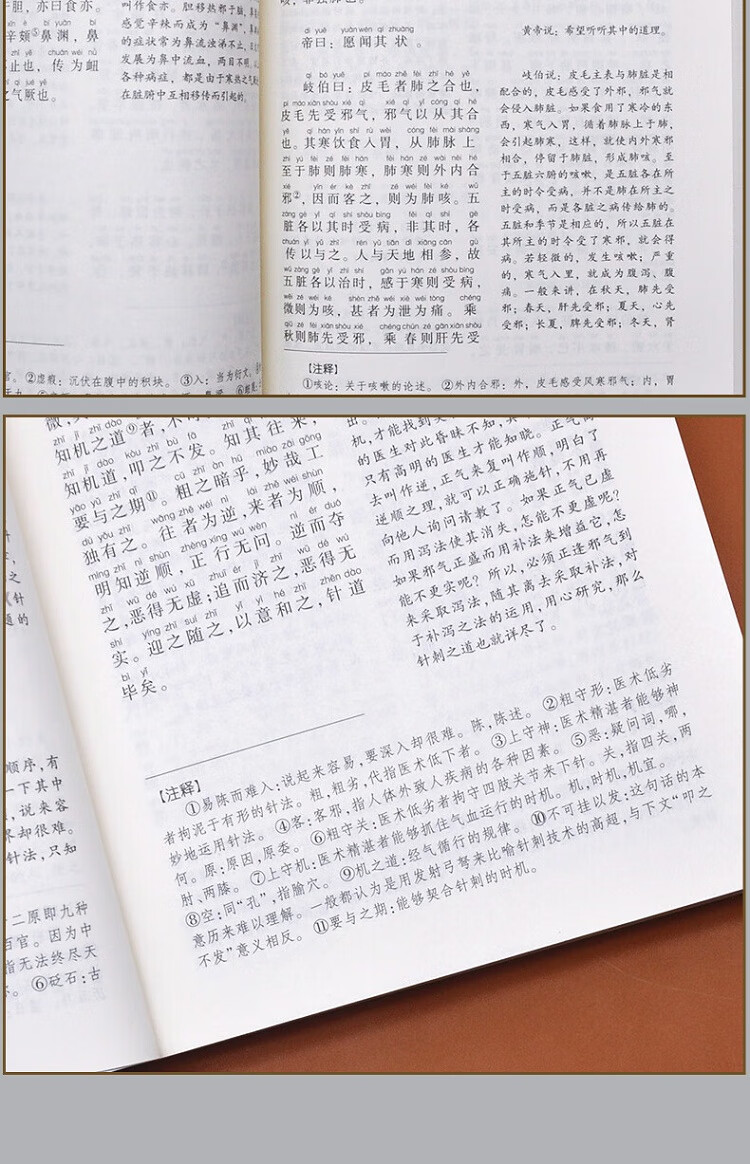 胆，亦曰食亦。
辛頞⑤鼻渊，鼻
止也，传为衄
之气厥也。
叫作食亦。胆移热邪于脑，
感觉辛辣而成为“鼻渊”，鼻
的症状常为鼻流浊涕不止，
发展为鼻中流血，两目不明，
各种病症，都是由于寒热之气
在脏腑中互相移传而引起的。
②虙瘕：沉伏在腹中的积块。 ③入：当为衍文。
dì yuē yuàn wén qí zhuàng
帝曰：愿闻其状。
qí bó yuē pí máo zhě fèi zhī hé yě
岐伯曰：皮毛者肺之合也，
pí máo xiān shòu xié qì xié qì yǐ cóng qí hé
皮毛先受邪气，邪气以从其合
yě qí hán yǐn shí rù wèi cóng fèi mài shàng
也。其寒饮食入胃，从肺脉上
zhì yú fèi zé fèi hán fèi hán zé wài nèi hé
至于肺则肺寒，肺寒则外内合
xié yīn ér kè zhī zé wéi fèi ké wǔ
邪②，因而客之，则为肺咳。五
zàng gè yǐ qí shí shòu bìng fēi qí shí gè
脏各以其时受病，非其时，各
chuán yǐ yǔ zhī rén yǔ tiān dì xiāng cān gù
传以与之。人与天地相参，故
wǔ zàng gè yǐ zhì shí gǎn yú hán zé shòu bìng
五脏各以治时，感于寒则受病，
wēi zé wéi ké shèn zhě wéi xiè wéi tòng chéng
微则为咳，甚者为泄为痛。乘
qiū zé fèi xiān shòu xié chéng chūn zé gān xiān shòu
秋则肺先受邪，乘春则肝先受
黄帝说：希望听听其中的道理。
岐伯说：皮毛主表与肺脏是相
配合的，皮毛感受了外邪，邪气就
会侵入肺脏。如果食用了寒冷的东
西，寒气入胃，循着肺脉上于肺，
会引起肺寒，这样，就使内外寒邪
相合，停留于肺脏，形成肺咳。至
于五脏六腑的咳嗽，是五脏各在所
主的时令受病，并不是肺在所主之
时受病，而是各脏之病传给肺的。
五脏和季节是相应的，所以五脏在
其所主的时令受了寒邪，就会得
病。若轻微的，发生咳嗽；严重
的，寒气入里，就成为腹泻、腹
痛。一般来讲，在秋天，肺先受
邪；春天，肝先受邪；夏天，心先
受邪；长夏，脾先受邪；冬天，肾
【注释】
①咳论：关于咳嗽的论述。 ②外内合邪：外，皮毛感受风寒邪气；内，胃
zhī jī zhī dào
知机之道⑨者，
zhī jī dào kòu zhī bù fā zhī qí wǎng lái
知机道，叩之不发。知其往来，
yào yǔ zhī qī cū zhī àn hū miào zāi gōng
要与之期⑪。粗之暗乎，妙哉工
dú yǒu zhī wǎng zhě wéi nì lái zhě wéi shùn
独有之。往者为逆，来者为顺，
míng zhī nì shùn zhèng xíng wú wèn nì ér duó
明知逆顺，正行无问。逆而夺
zhī wū dé wú xū zhuī ér jì zhī wū dé wú
之，恶得无虚；追而济之，恶得无
shí yíng zhī suí zhī yǐ yì hé zhī zhēn dào
实。迎之随之，以意和之，针道
bì yǐ
毕矣。
机，才能找到
的医生对此昏昧不知，
只有高明的医生才能知晓。正气
去叫作逆，正气来复叫作顺，明白了
逆顺之理，就可以正确施针，不用再
向他人询问请教了。如果正气已虚
而用泻法使其消失，怎能不更虚呢？
如果邪气正盛而用补法来增益它，怎
能不更实呢？所以，必须正逢邪气到
来采取泻法，随其离去采取补法，对
于补泻之法的运用，用心研究，那么
针刺之道也就详尽了。
【注释】
①易陈而难入：说起来容易，要深入却很难。陈，陈述。 ②粗守形：医术低劣
者拘泥于有形的针法。粗，粗劣，代指医术低下者。 ③上守神：医术精湛者能够神
妙地运用针法。 ④客：客邪，指人体外致人疾病的各种因素。 ⑤恶：疑问词，哪，
何。原：原因，原委。 ⑥粗守关：医术低劣者拘守四肢关节来下针。关，指四关，两
肘、两膝。 ⑦上守机：医术精湛者能够抓住气血运行的时机。机，时机，机宜。
⑧空：同“孔”，指腧穴。 ⑨机之道：经气循行的规律。 ⑩不可挂以发：这句话的本
意历来难以理解。一般都认为是用发射弓弩来比喻针刺技术的高超，与下文“叩之
不发”意义相反。 ⑪要与之期：能够契合针刺的时机。
顺序，有
一下其中
，说来容
却很难。
针法，只知
二原即九种
百官。因为中
指无法终尽天
⑥砭石：古